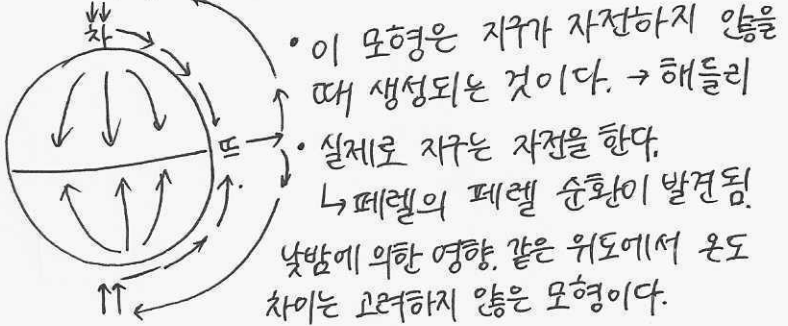 차
뜨
• 이 모형은 지구가 자전하지 않을
때 생성되는 것이다. → 해들리
• 실제로 지구는 자전을 한다.
↳ 페렐의 페렐 순환이 발견됨.
낮밤에 의한 영향. 같은 위도에서 온도
차이는 고려하지 않은 모형이다.